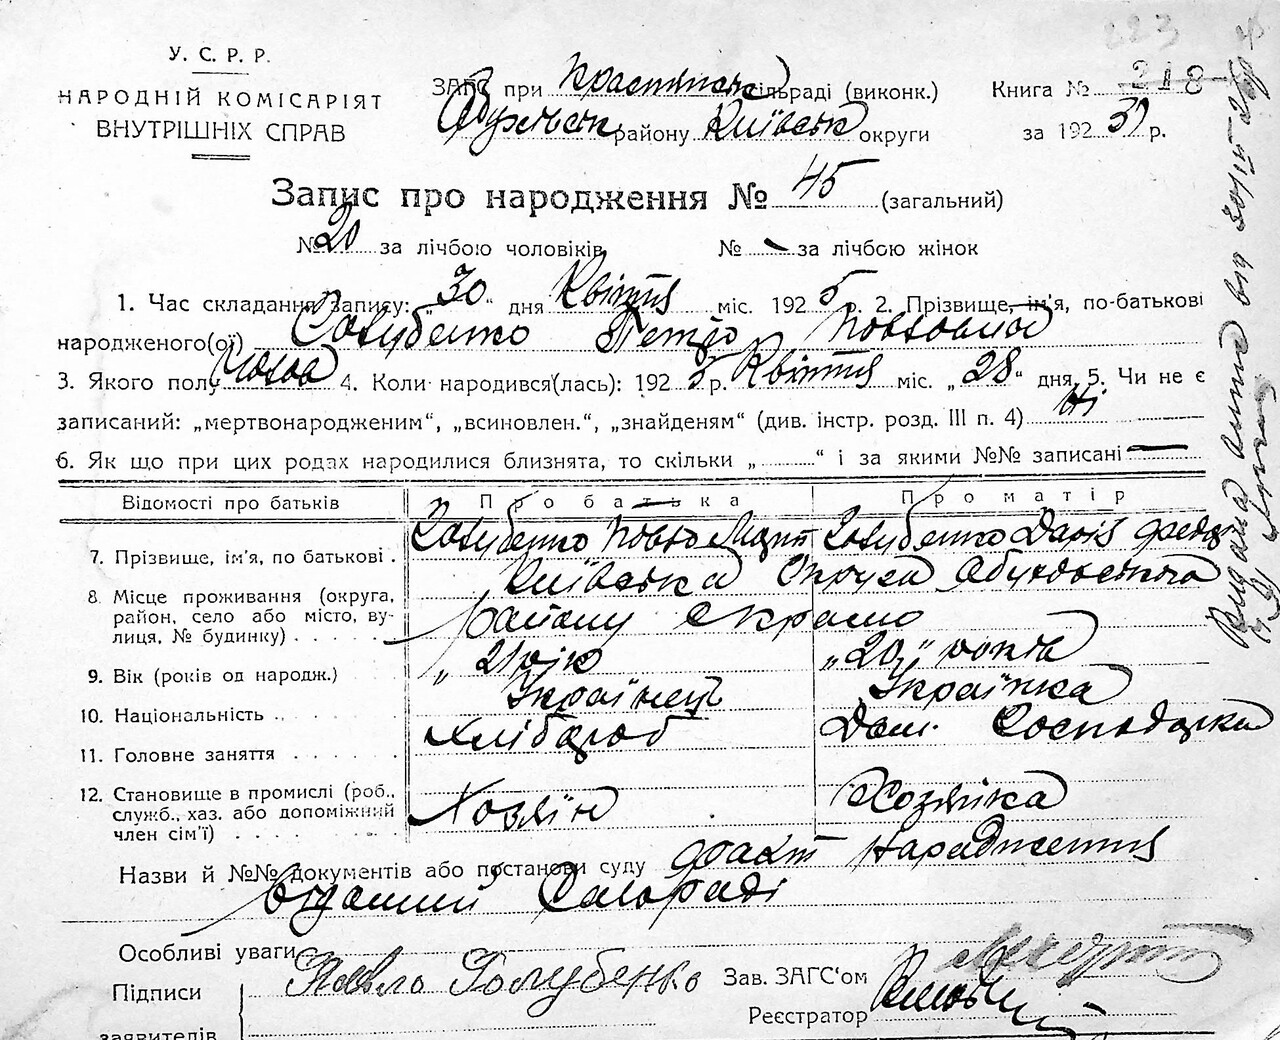 У. С. Р. Р.
НАРОДНІЙ КОМІСАРІЯТ
ВНУТРІШНІХ СПРАВ
ЗАГС при сільраді (виконк.)
району Київськ округи
Книга № 218
за 192 р.
223
Запис про народження № 45 (загальний)
№ 20 за лічбою чоловіків № — за лічбою жінок
1. Час складання запису: „30“ дня Квітня міс. 1925 р. 2. Прізвище, ім'я, по-батькові
народженого(ої) Голубенко Петро Павлович
3. Якого полу 4. Коли народився(лась): 1925 р. Квітня міс. „28“ дня 5. Чи не є
записаний: „мертвонародженим“, „всиновлен.“, „знайденям“ (див. інстр. розд. III п. 4) Ні
6. Як що при цих родах народилися близнята, то скільки „ “ і за якими №№ записані —
Відомості про батьків Про батька Про матір
7. Прізвище, ім'я, по батькові . Голубенко Павло Голубенко Дарія
8. Місце проживання (округа, район, село або місто, вулиця, № будинку) . . . . . Київська Округа
району
9. Вік (років од народж.) „ 21 рік „20„ років
10. Національність . . Українець Українка
11. Головне заняття . . . . . . Хлібороб Дом. Господарка
12. Становище в промислі (роб., служб., хаз. або допоміжний член сім'ї) . . . . . Хозяїн Хозяйка
Назви й №№ документів або постанови суду факт народження
Сільраді
Особливі уваги
Підписи
заявителів
Павло Голубенко
Зав. ЗАГС'ом
Реєстратор